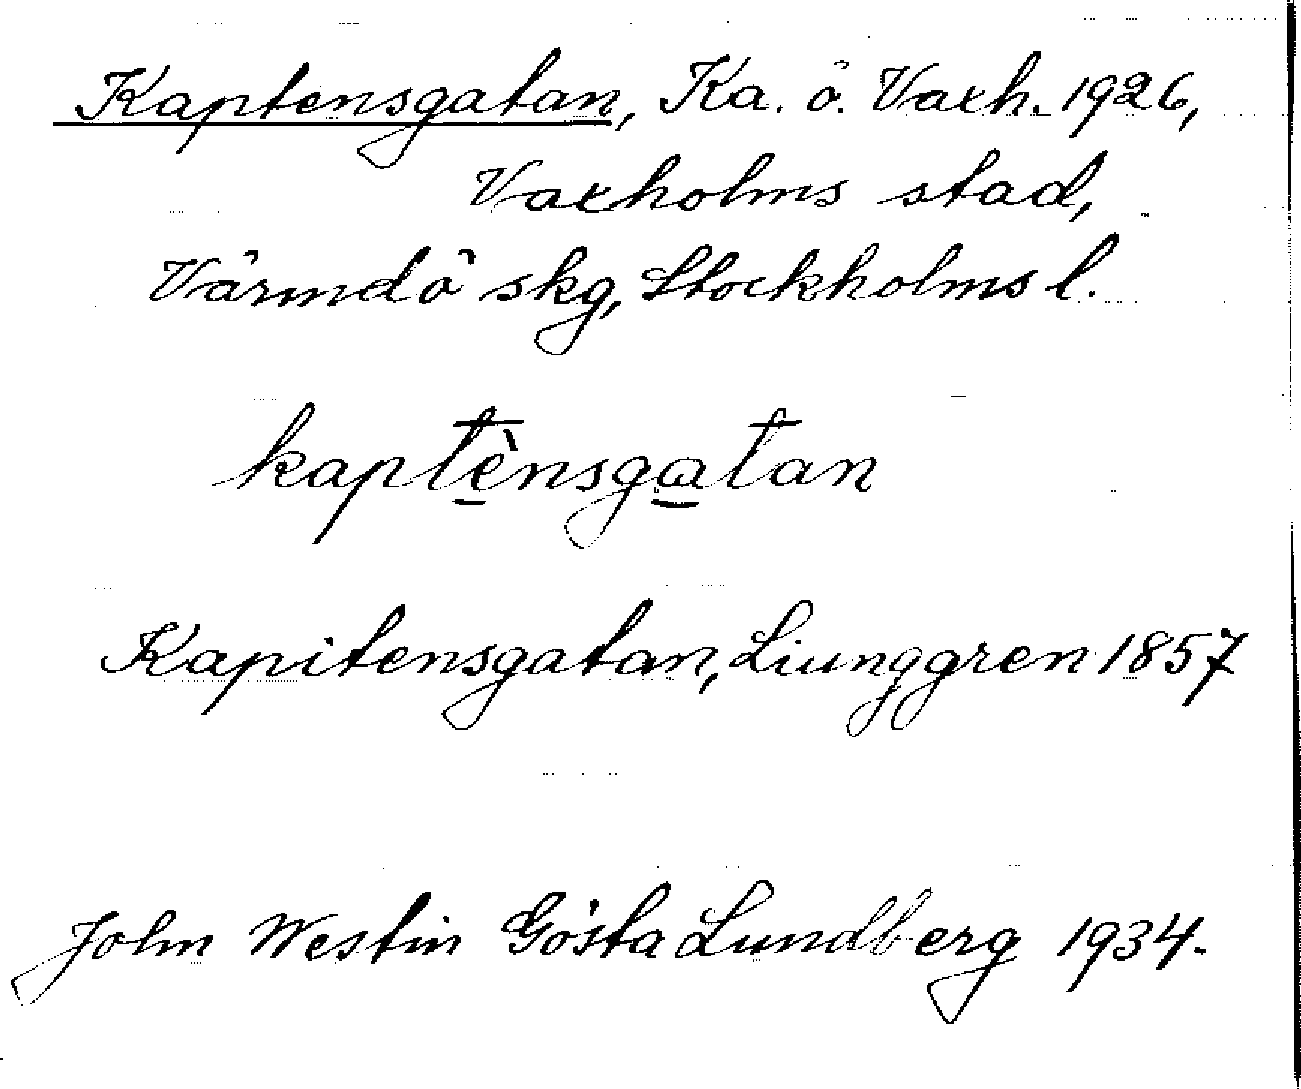 Kaptensgatan, Ka. ö. Vaxh. 1926,
Vaxholms stad,
Värmdö skg, Stockholms l.
kaptènsgatan
Kapitensgatan, Liunggren 1857
John Westin Gösta Lundberg 1934.